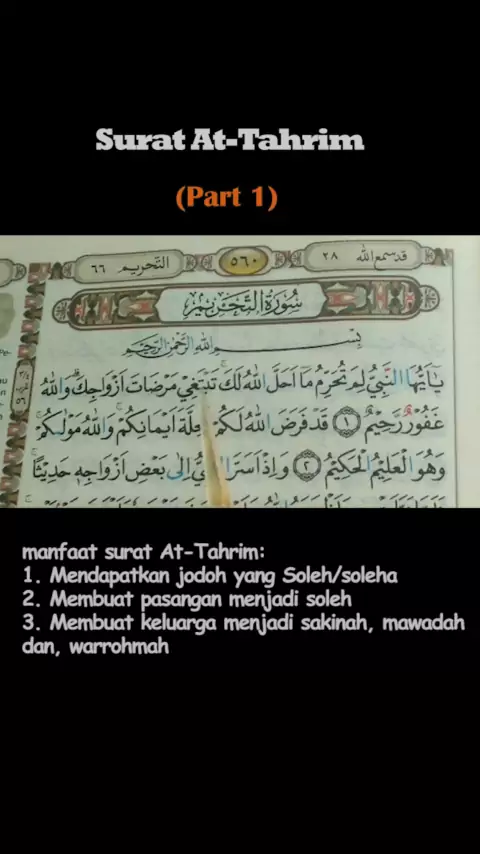 Surat At-Tahrim
(Part 1)
قد سمع الله ٢٨
٥٦٠
التحريم ٦٦
سُورَةُ التَّحْرِيْمِ
بِسْمِ اللهِ الرَّحْمٰنِ الرَّحِيْمِ
يٰٓاَيُّهَا النَّبِيُّ لِمَ تُحَرِّمُ مَآ اَحَلَّ اللهُ لَكَ تَبْتَغِيْ مَرْضَاتَ اَزْوَاجِكَ وَاللهُ
غَفُوْرٌ رَّحِيْمٌ ١ قَدْ فَرَضَ اللهُ لَكُمْ تَحِلَّةَ اَيْمَانِكُمْ وَاللهُ مَوْلٰىكُمْ
وَهُوَ الْعَلِيْمُ الْحَكِيْمُ ٢ وَاِذْ اَسَرَّ النَّبِيُّ اِلٰى بَعْضِ اَزْوَاجِهٖ حَدِيْثًا
manfaat surat At-Tahrim:
1. Mendapatkan jodoh yang Soleh/soleha
2. Membuat pasangan menjadi soleh
3. Membuat keluarga menjadi sakinah, mawadah
dan, warrohmah